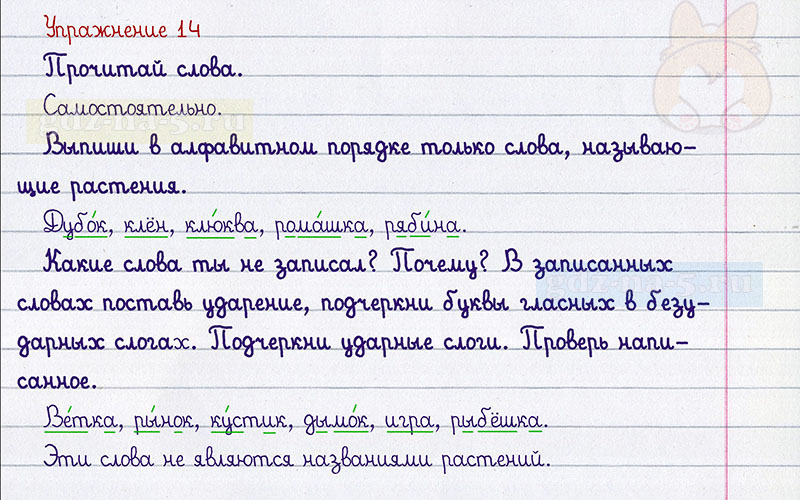 Упражнение 14
Прочитай слова.
Самостоятельно.
gdz-na-5.ru
Выпиши в алфавитном порядке только слова, называю-
щие растения.
Дубо́к, клён, клю́ква, рома́шка, ряби́на.
Какие слова ты не записал? Почему? В записанных
gdz-na-5.ru
словах поставь ударение, подчеркни буквы гласных в безу-
дарных слогах. Подчеркни ударные слоги. Проверь напи-
санное.
Ве́тка, ры́нок, ку́стик, дымо́к, игра, рыбёшка.
Эти слова не являются названиями растений.